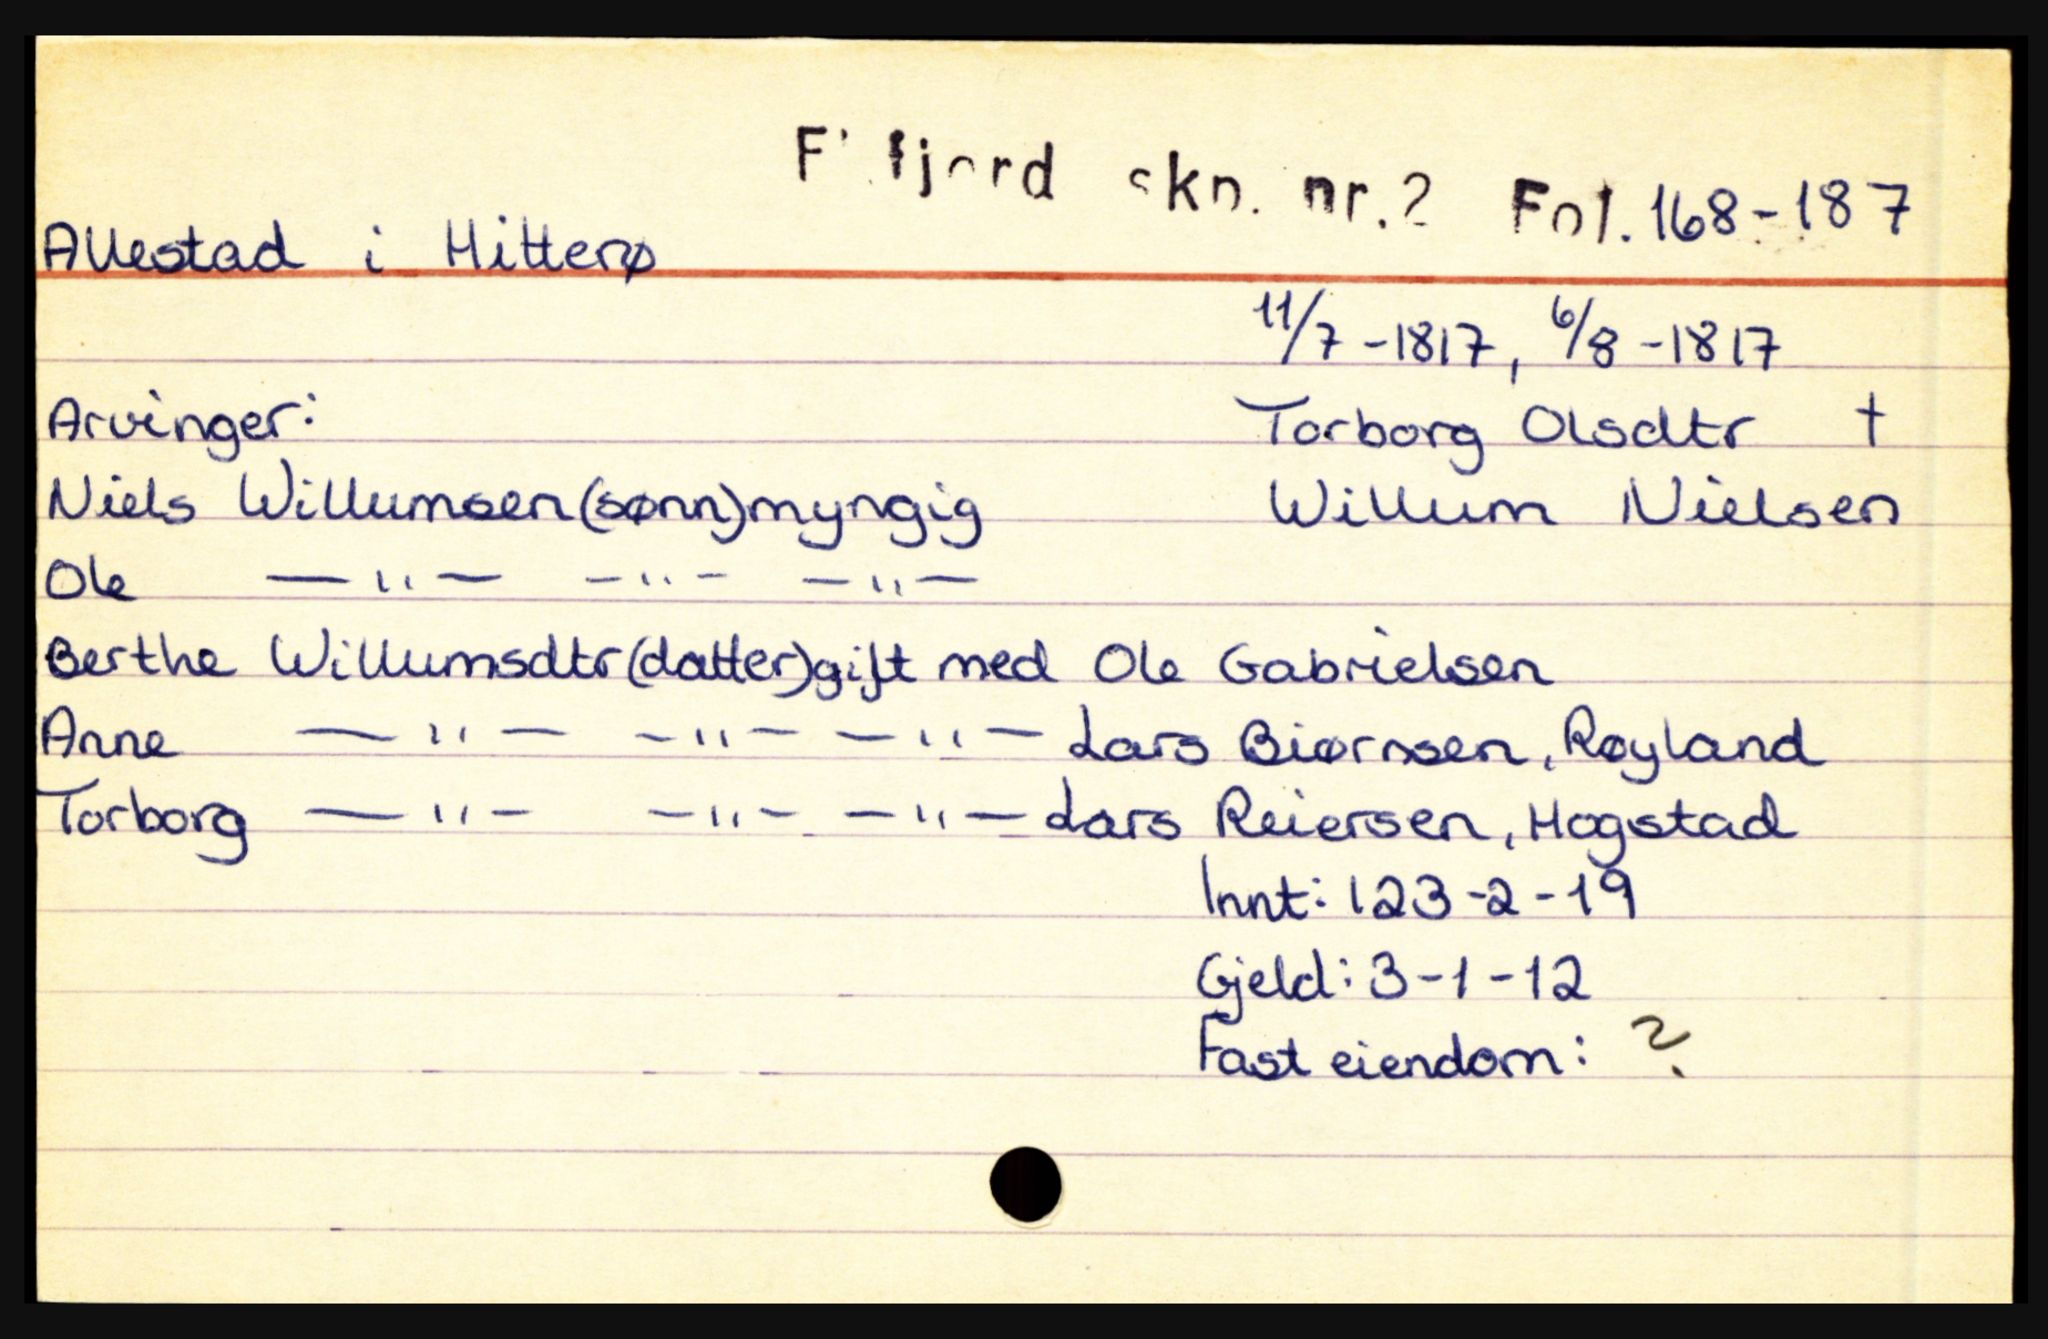 fjord skn. nr.2 Fol. 168-187
Allestad i Hitterø
11/7-1817, 6/8-1817
Arvinger: Torborg Olsdtr †
Niels Willumsen (sønn) myngig Willum Nielsen
Ole —"— —"— —"—
Berthe Willumsdtr (datter) gift med Ole Gabrielsen
Anne —"— —"— —"— Lars Biørnsen, Røyland
Torborg —"— —"— —"— Lars Reiersen, Hogstad
Innt: 123-2-19
Gjeld: 3-1-12
Fast eiendom: ?